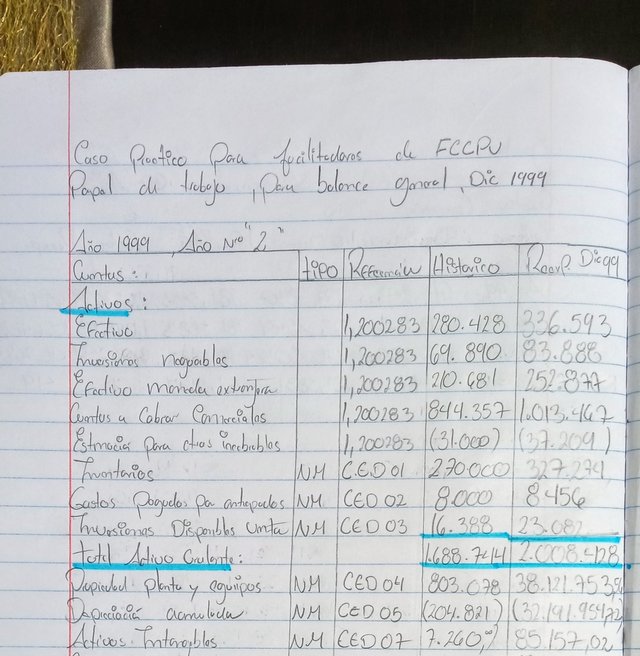 Caso Practico para facilitadores de FCCPV
Papel de trabajo, para balance general, Dic 1999
Año 1999 Año Nro "2"
Cuentas: tipo Referencia Historico Reexp. Dic99
Activos:
Efectivo 1,200283 280.428 336.593
Inversiones negociables 1,200283 69.890 83.888
Efectivo moneda extranjera 1,200283 210.681 252.877
Cuentas a Cobrar Comerciales 1,200283 844.357 1.013.467
Estimacia para ctas incobrables 1,200283 (31.000) (37.209)
Inventarios NM CED 01 270.000 327.274
Gastos pagados por anticipados NM CED 02 8.000 8.456
Inversiones Disponibles venta NM CED 03 16.388 23.082
total Activo Circulante: 1.688.744 2.008.428
Propiedad planta y equipos NM CED 04 803.078 38.121.753,96
Depreciación acumulada NM CED 05 (204.821) (32.191.954,72
Activos Intangibles NM CED 07 7.260,00 85.157,02